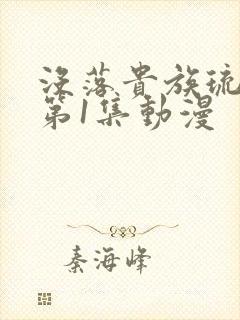 没落貴族琉
第1集動漫
秦海峰